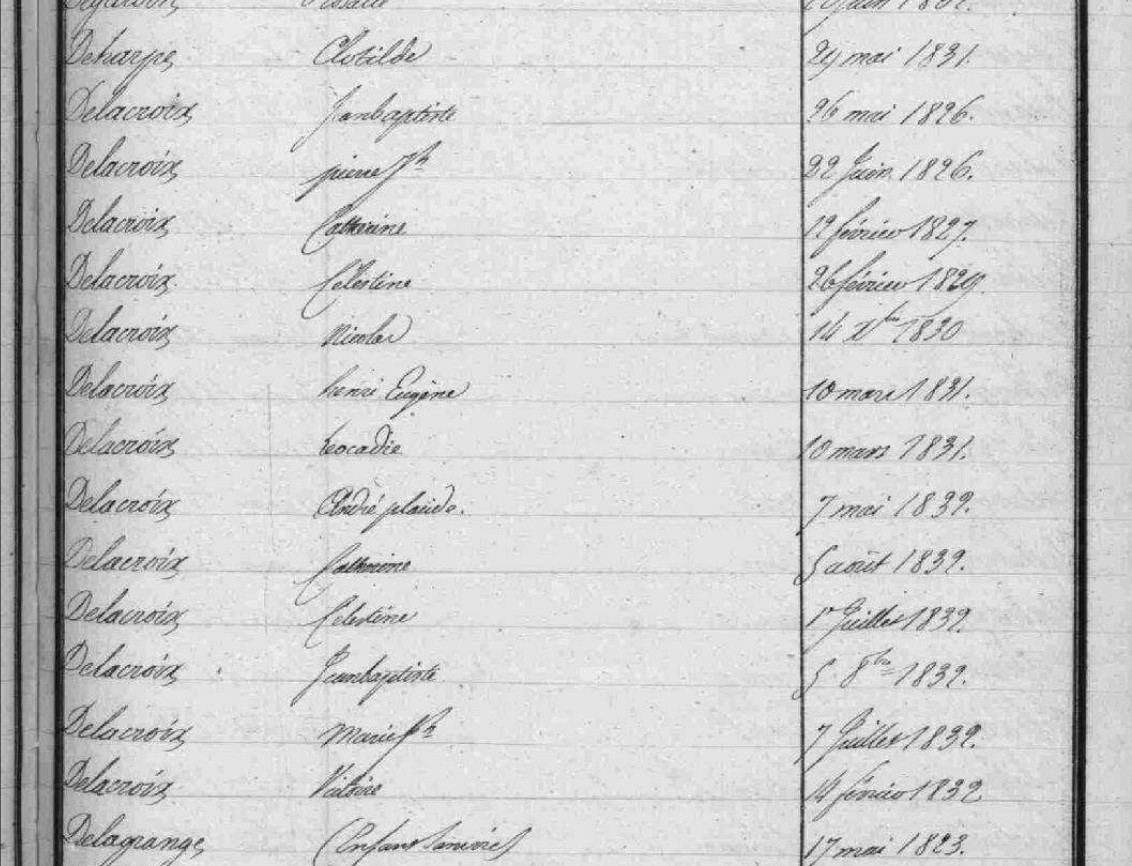 Rosalie
Deharpe Clotilde 24 mai 1831.
Delacroix Jeanbaptiste 26 mai 1826.
Delacroix pierre Jh 22 Juin 1826.
Delacroix Catherine 12 février 1827.
Delacroix Célestine 26 février 1829.
Delacroix Nicolas 14 Xbre 1830
Delacroix henri Eugène 10 mars 1831.
Delacroix Leocadie 10 mars 1831.
Delacroix André placide. 7 mai 1832.
Delacroix Catherine 5 août 1832.
Delacroix Célestine 1r Juillet 1832.
Delacroix Jeanbaptiste 5 8bre 1832.
Delacroix Marie Jh 7 Juillet 1832.
Delacroix Victoire 14 février 1832
Delagrange (Enfant sans vie) 17 mai 1823.